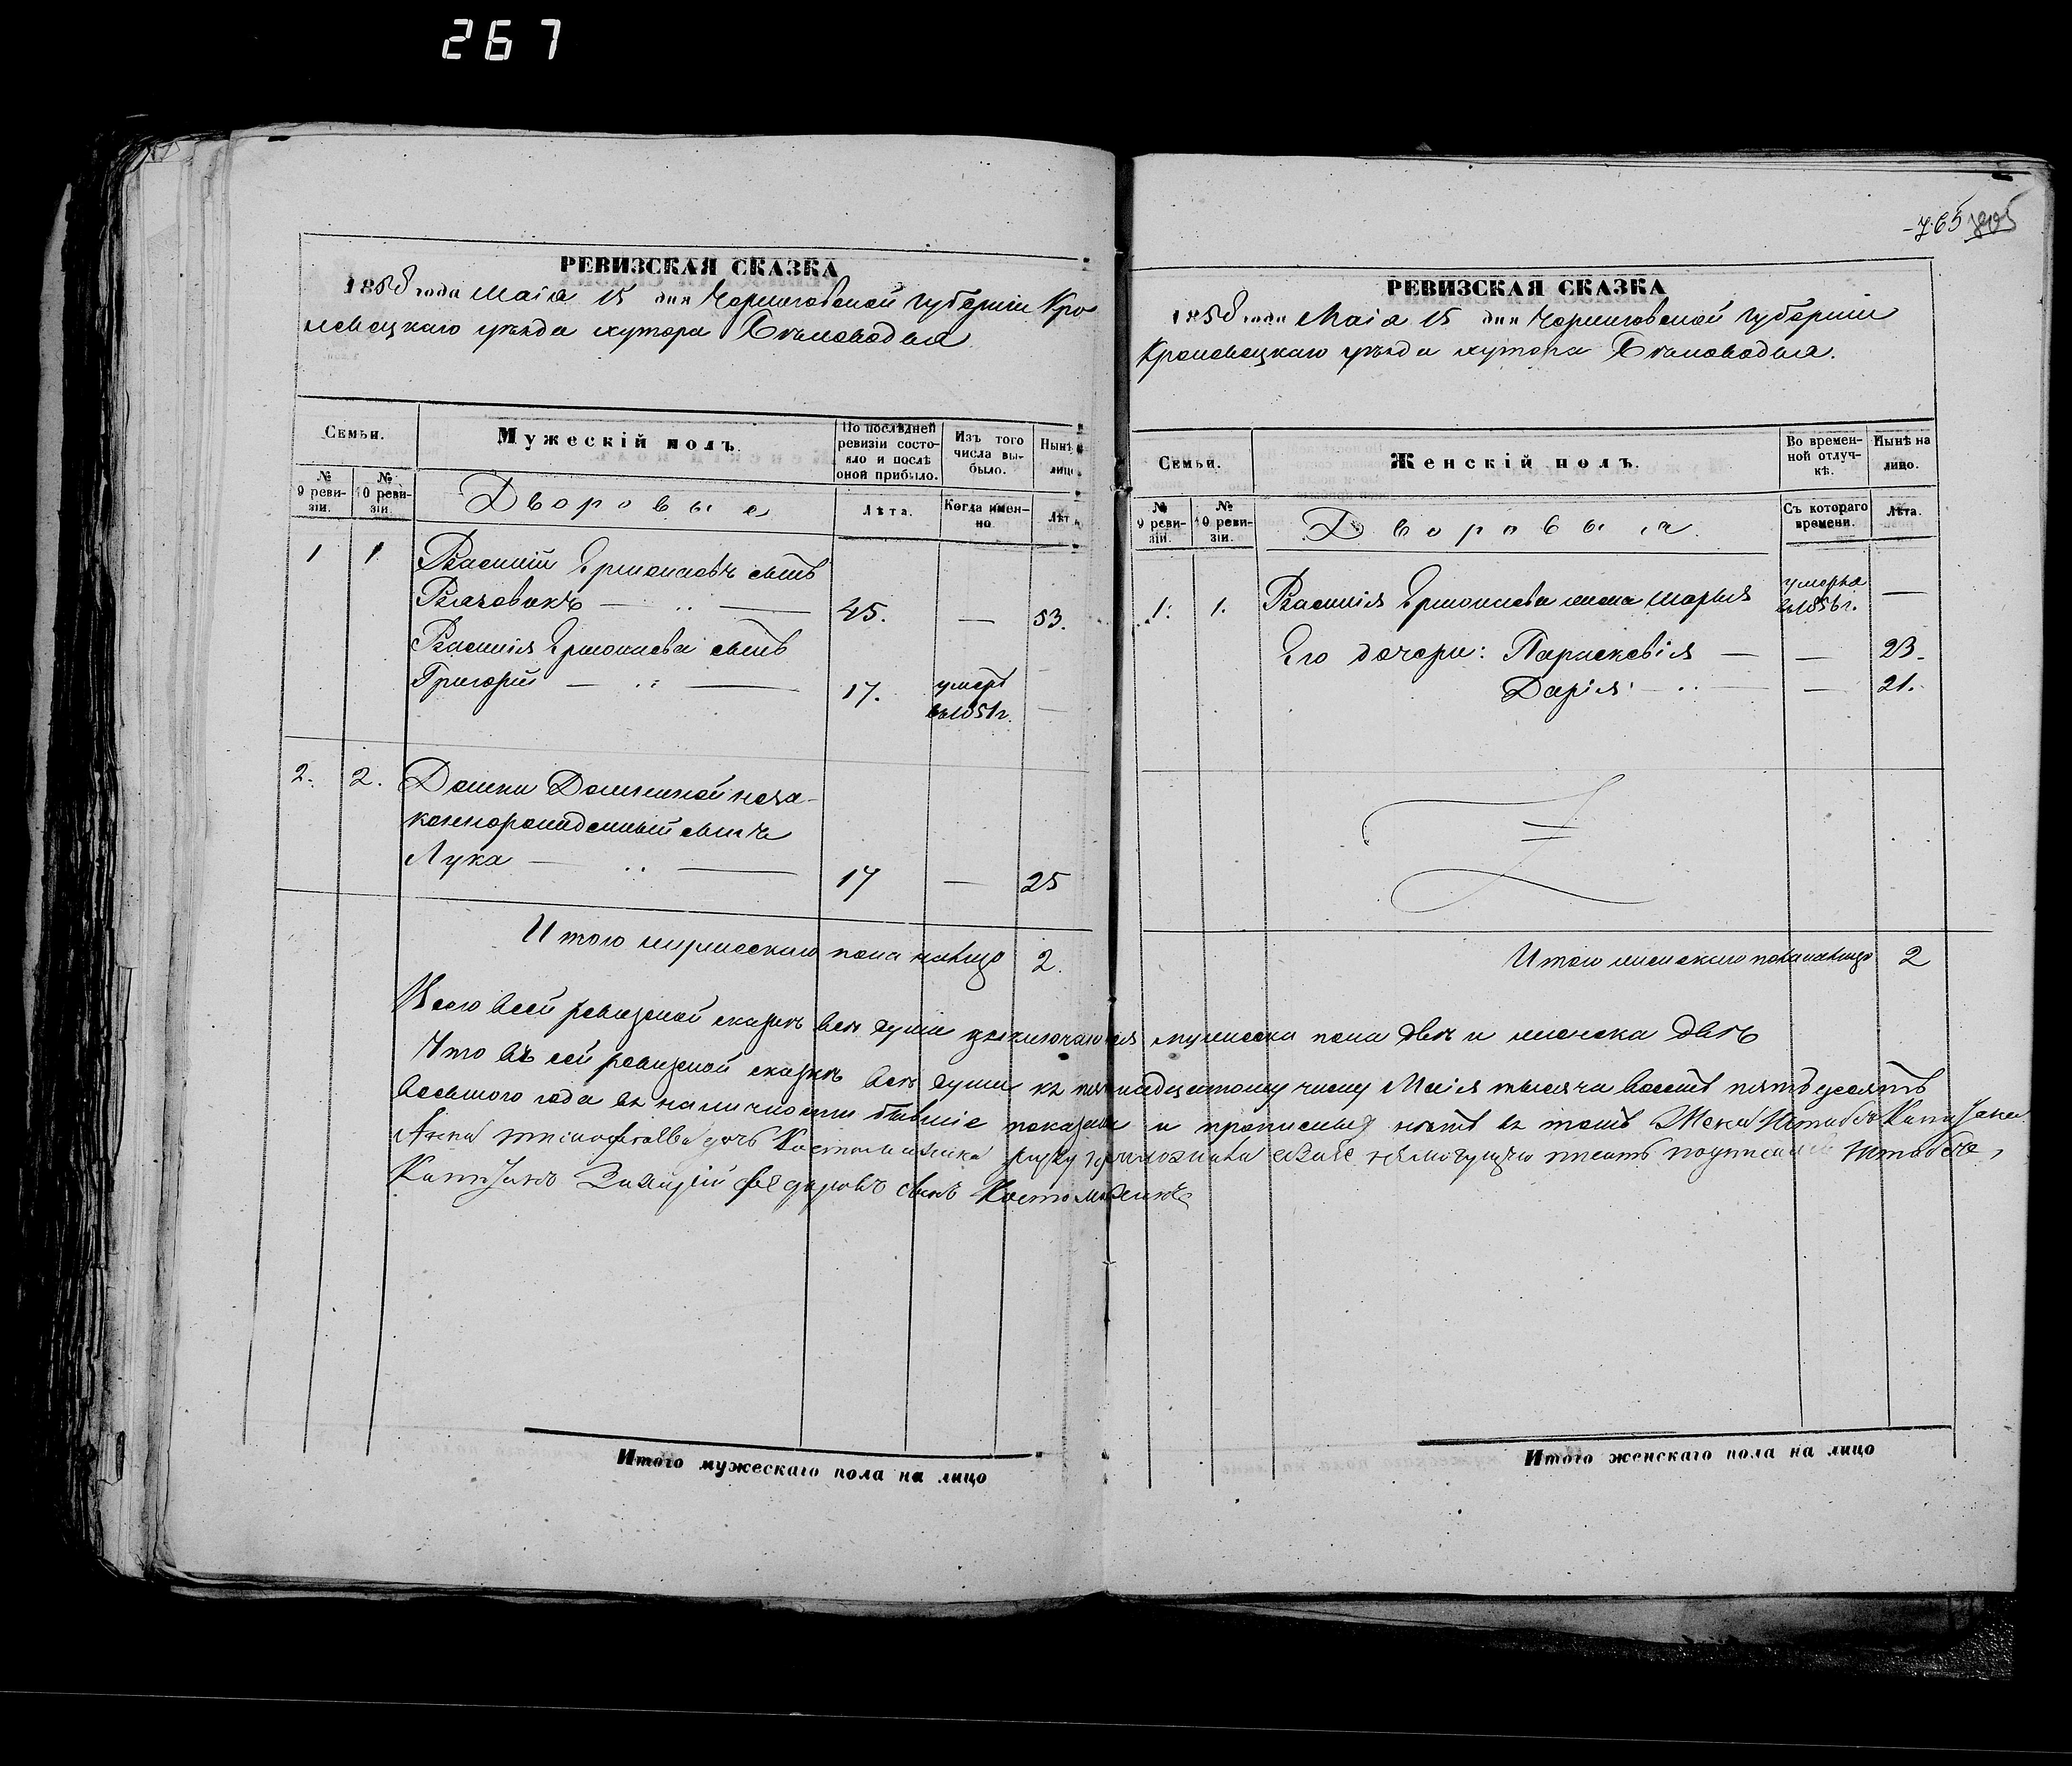 267
РЕВИЗСКАЯ СКАЗКА
1858 года Маія 15 дня Черниговской Губерніи Кро
левецкаго уѣзда хутора
Семьи.
Мужескій полъ.
По послѣдней ревизіи состояло и послѣ оной прибыло.
Изъ того числа выбыло.
Нынѣ лицо
№ 9 ревизіи.
№ 10 ревизіи.
Дворовые
Лѣта.
Когда именно.
Лѣт
1 1 Василій Ермолаевъ сынъ
— 45. — 53.
Василія Ермолаева сынъ
Григорій — 17. умеръ
въ 1851 г. —
2. 2. неза-
коннорожденный сынъ
Лука — 17 — 25
Итого мужескаго пола налицо 2.
765
РЕВИЗСКАЯ СКАЗКА
1858 года Маія 15 дня Черниговской Губерніи
Кролевецкаго уѣзда хутора
Семьи.
Женскій полъ.
Во временной отлучкѣ.
Нынѣ на лицо.
№ 9 ревизіи.
№ 10 ревизіи.
Дворовыя.
Съ котораго времени.
Лѣта.
1. 1. Василія Ермолаева жена Марья умерла
въ 1856 г. —
Его дочери: Парасковія — — 23.
Дарія — — 21.
Итого женскаго пола налицо 2
Всего въ сей ревизской сказкѣ всѣ души заключаются мужеска пола двѣ и женска двѣ
Что въ сей ревизской сказкѣ всѣ души къ пятнадцатому числу Маія тысяча восемь пятьдесятъ
восьмого года въ наличности бывшіе показаны и прописныхъ нѣтъ въ томъ Жена Штабсъ Капитана
Анна дочь руку приложила а вместо неё немогущую писать подписался Штабсъ
Капитанъ Федоровъ сынъ
Итого мужескаго пола на лицо
Итого женскаго пола на лицо